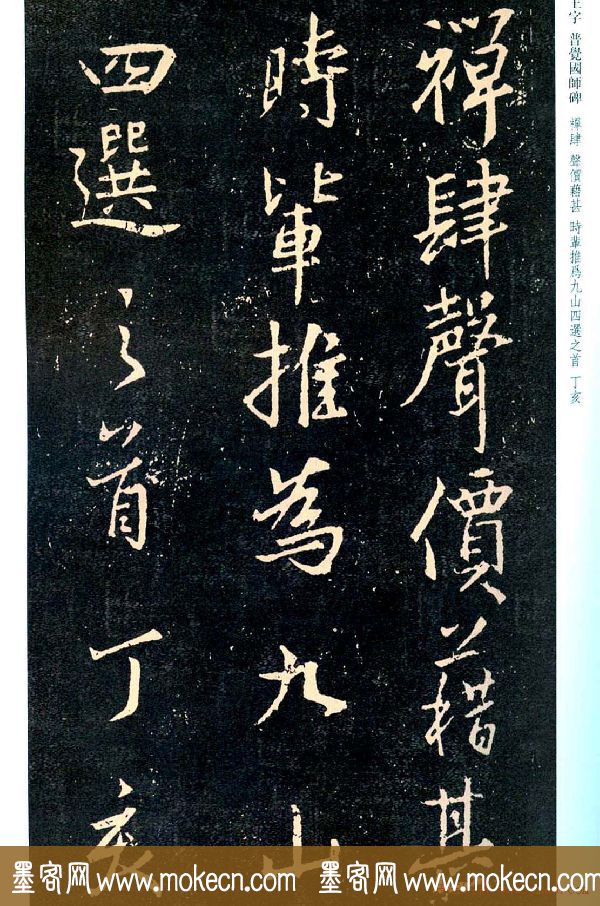 禪肆聲價藉甚
時輩推為九山
四選之首丁亥
王字 普覺國師碑 禪肆 聲價藉甚 時輩推爲九山四選之首 丁亥
墨客网 www.mokecn.com 墨客网 www.mokecn.com